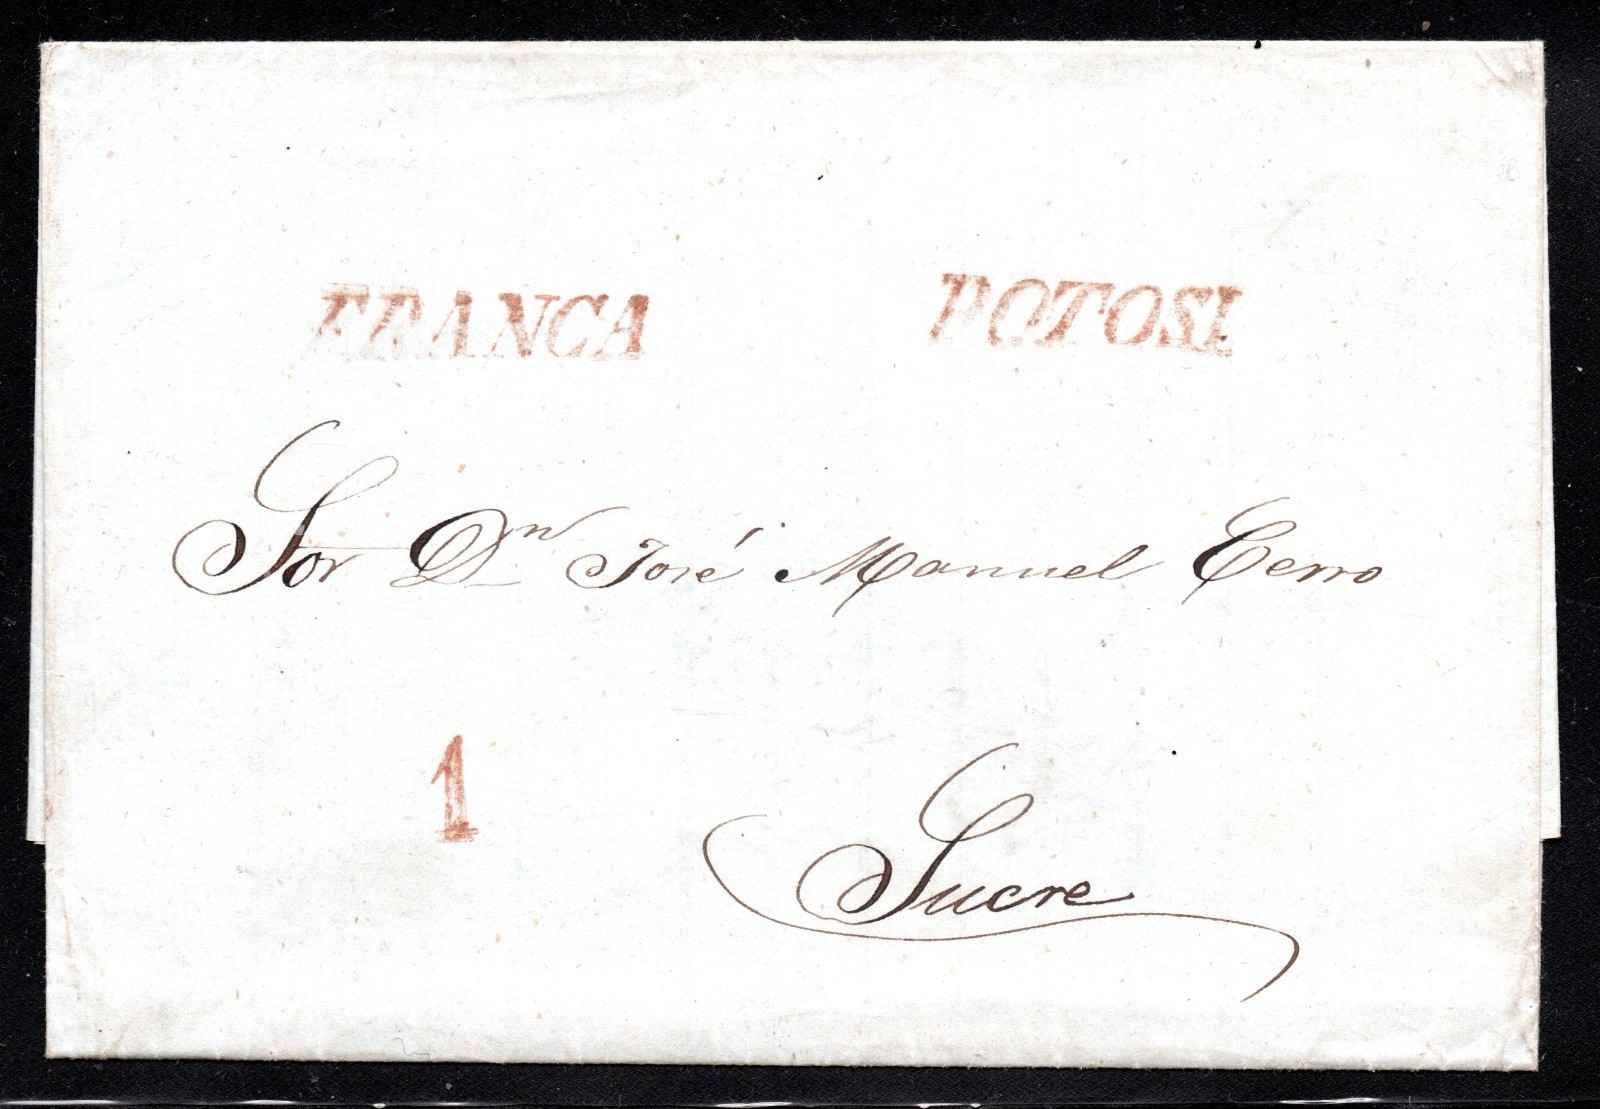 FRANCA POTOSI
Sor Dn José Manuel Cerro
1
Sucre